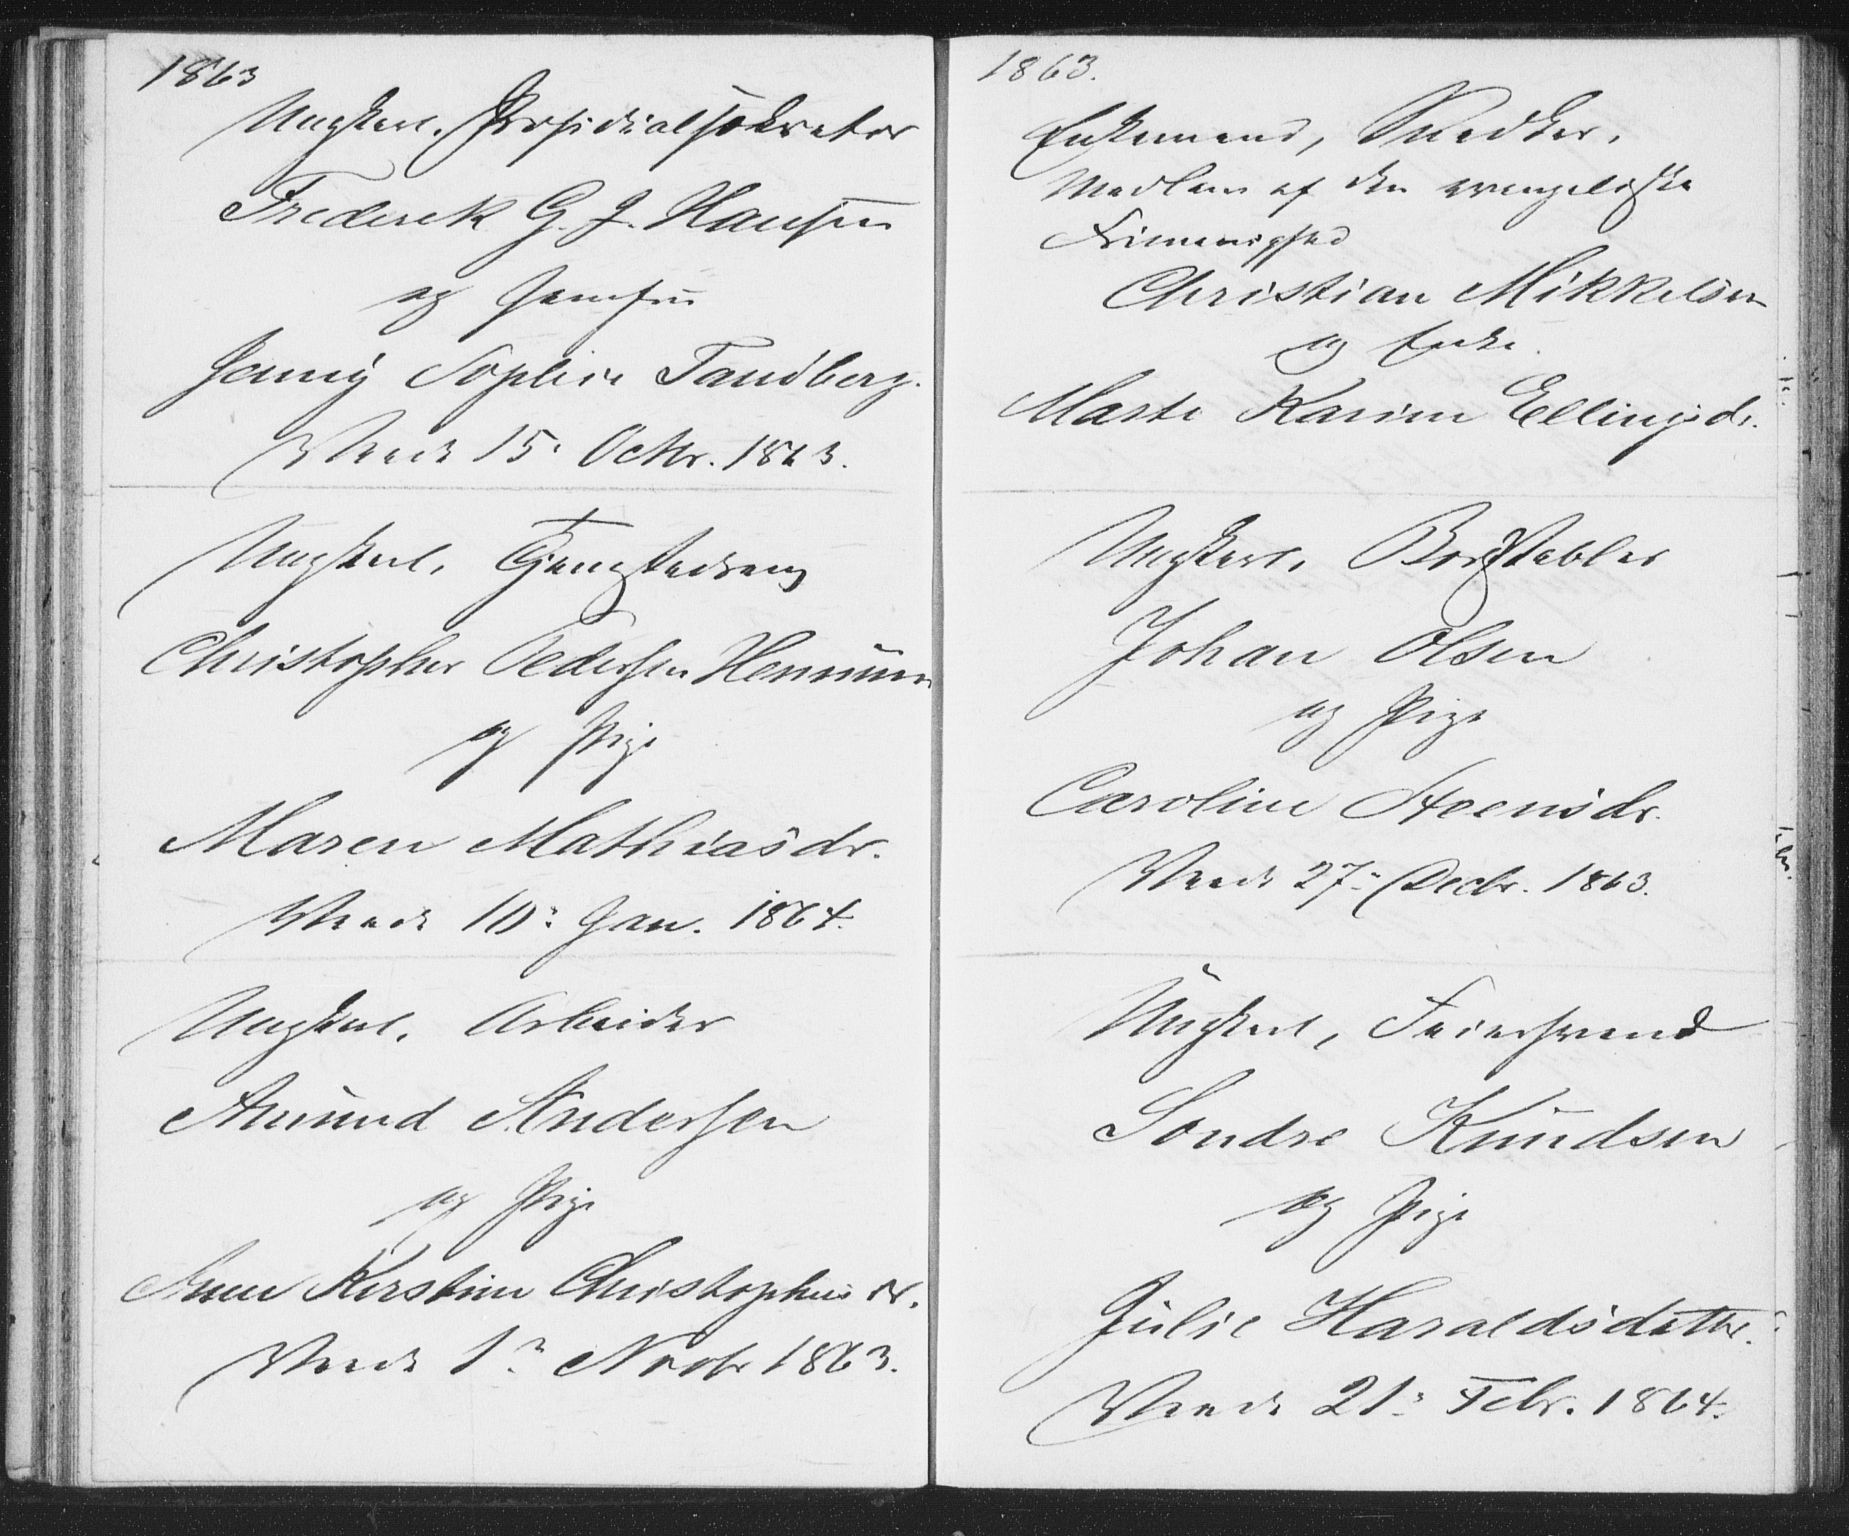 1863
Ungkarl, Præsidialsekretær
Frederik G. J. Hansen
og Jomfru
Jenny Sophie Tandberg.
Viede 15. Octbr. 1863.
Ungkarl, Tjenestedreng
Christopher Pedersen Hennum
og Pige
Maren Mathiasdr.
Viede 10. Jan. 1864.
Ungkarl, Arbeider
Amund Andersen
og Pige
Anne Kirstine Christophersdr.
Viede 1. Novbr 1863.
1863.
Enkemand, Snedker,
Medlem af den evangeliske
Frimenighed
Christian Mikkelsen
og Enke
Marte Karine Ellingsdr.
Ungkarl, Bordstabler
Johan Olsen
og Pige
Caroline Steensdr.
Viede 27. Decbr. 1863.
Ungkarl, Feiersvend
Sondre Knudsen
og Pige
Julie Haraldsdatter.
Viede 21. Febr. 1864.